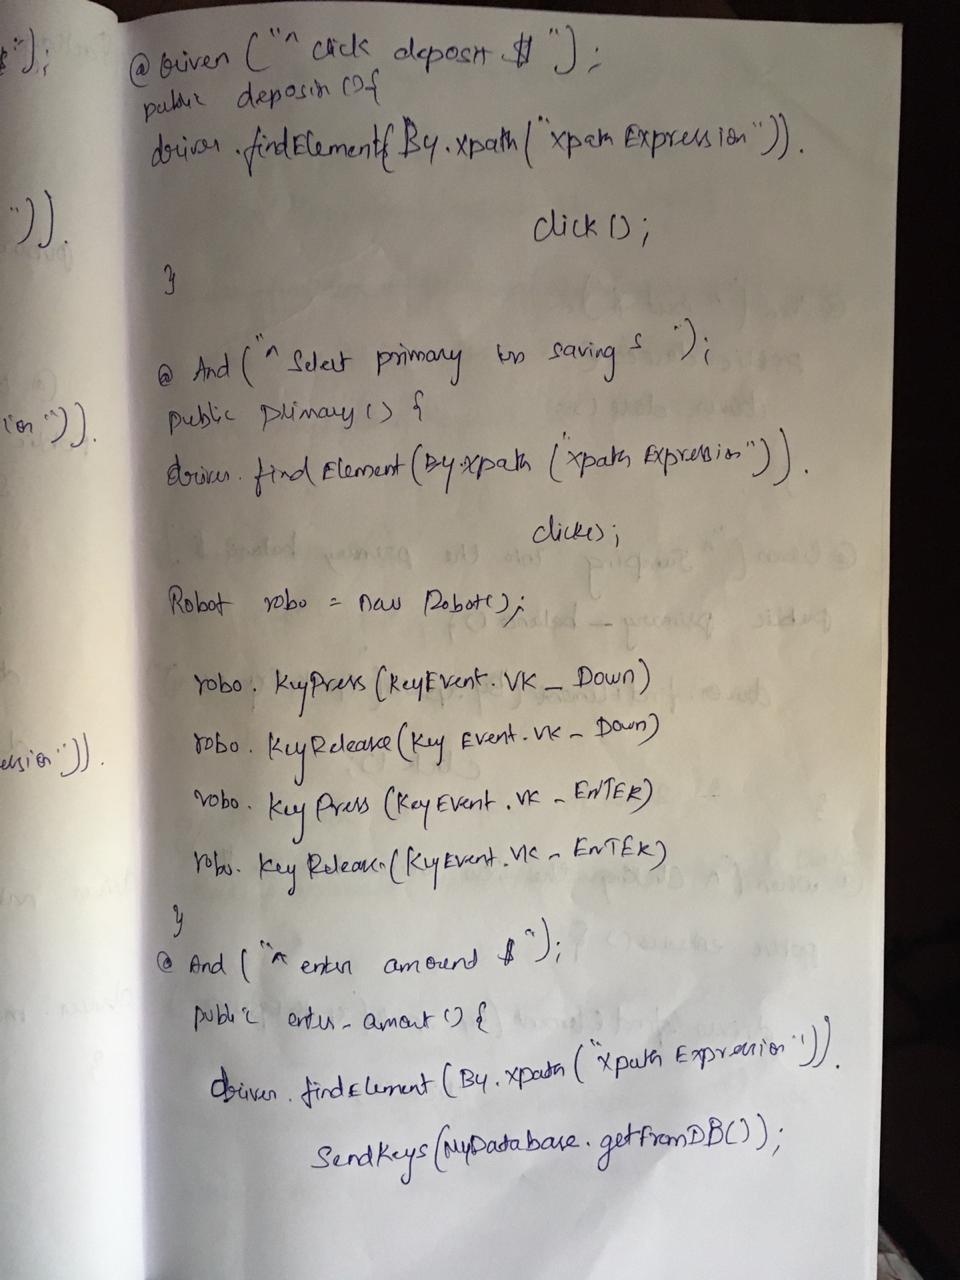 $");
")).
ion")).
ession")).
@ Given ("^ click deposit $");
public deposit () {
driver.findElement(By.xpath("xpath Expression")).
click();
}
@ And ("^ Select primary saving $");
public primary() {
driver.findElement(By.xpath("xpath Expression")).
click();
Robot robo = new Robot();
robo.KeyPress(KeyEvent.VK_Down)
robo.KeyRelease(Key Event.VK_Down)
robo.Key Press (KeyEvent.VK_ENTER)
robo.Key Release(KeyEvent.VK_ENTER)
}
@ And ("^ enter amound $");
public enter-amout () {
driver.findElement(By.xpath("xpath Expression")).
SendKeys(MyDatabase.getFromDB());